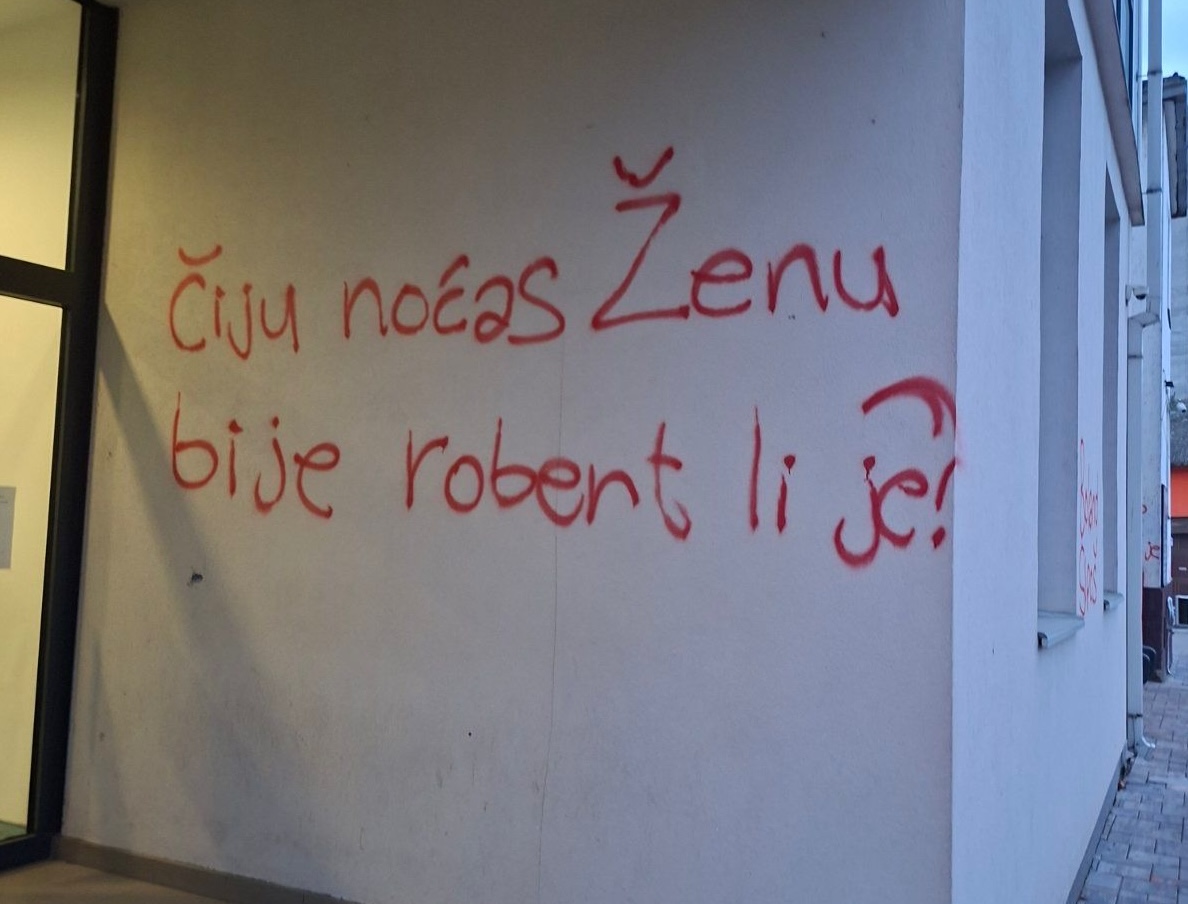 čiju noćas Ženu
bije robert li je?
je